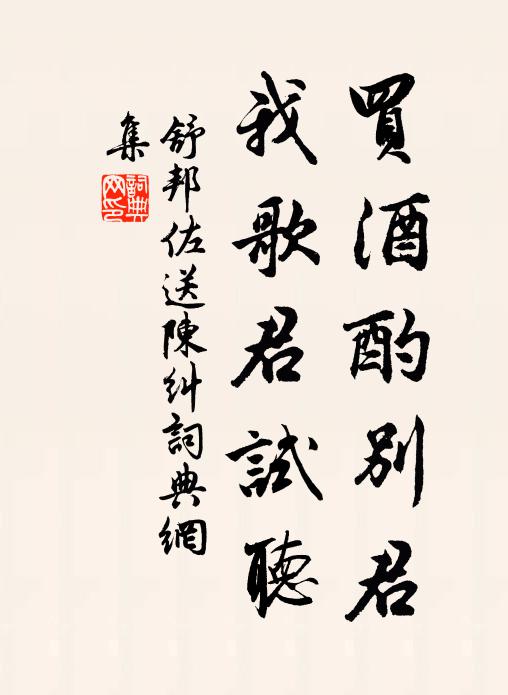 買酒酌別君
我歌君試聽
舒邦佐送陳糾詞典網
集
詞典
网印